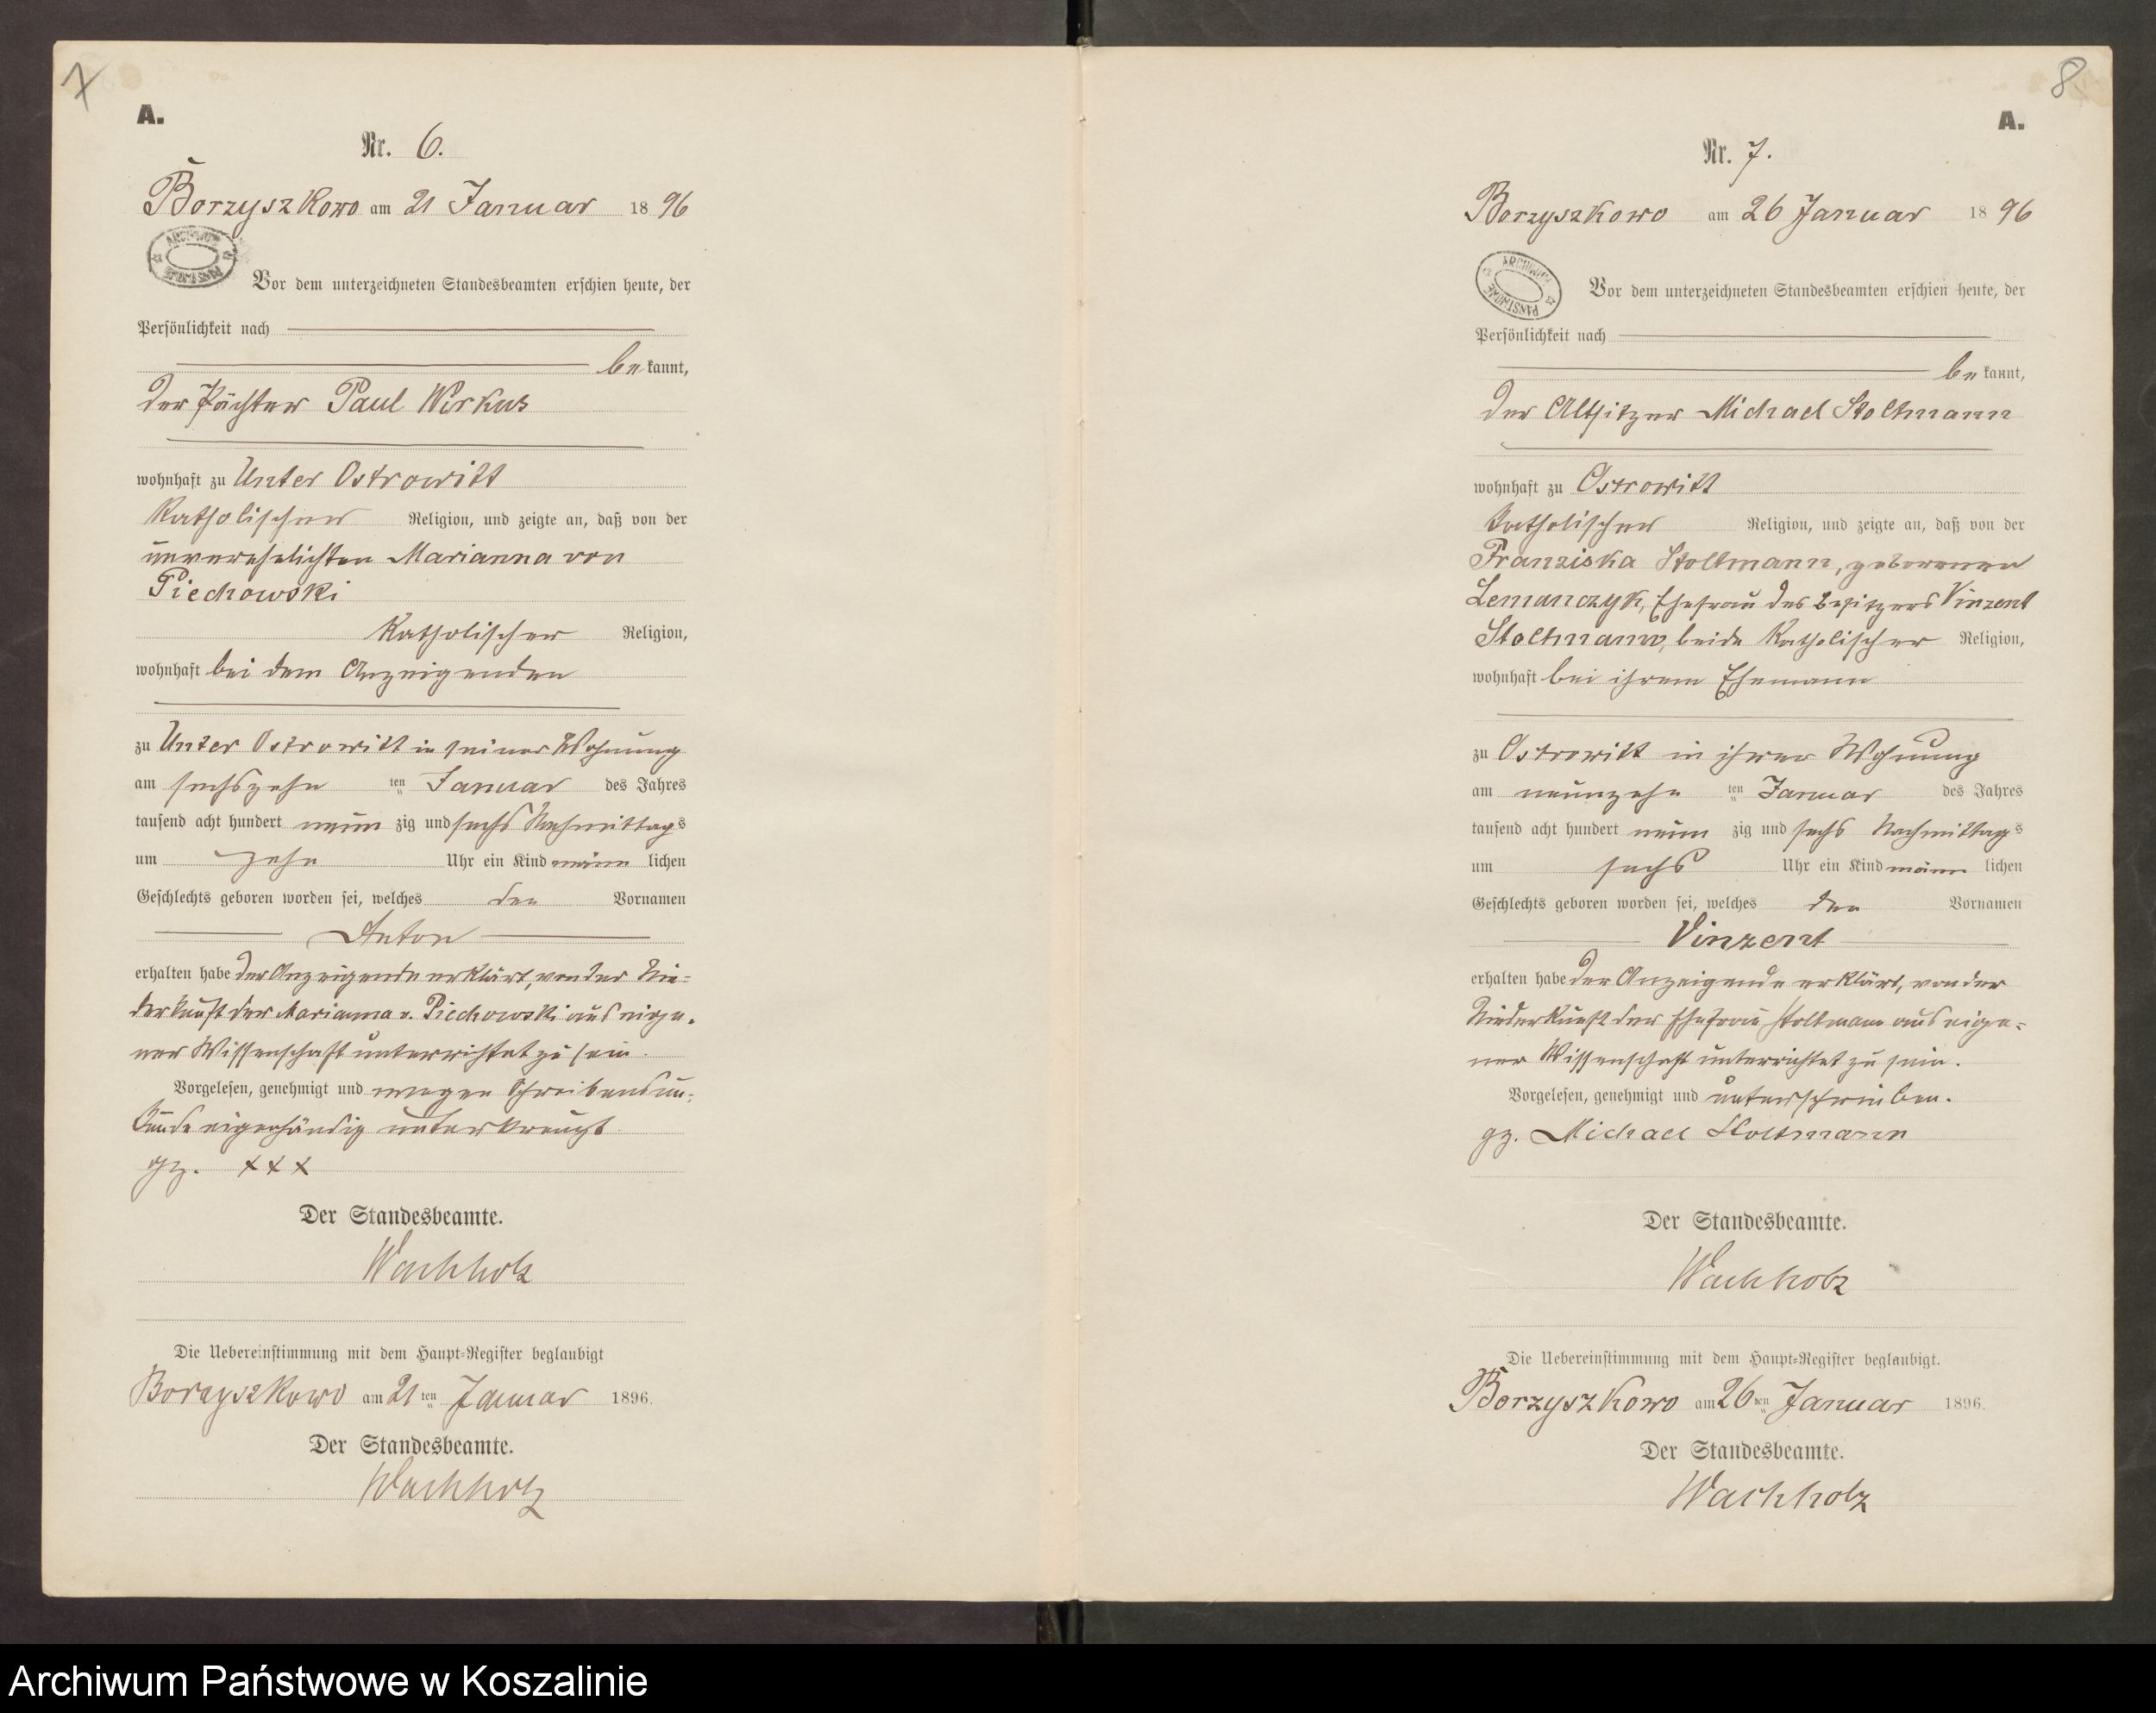 7
A.
Nr. 6.
Borzyszkowo am 21 Januar 1896
ARCHIWUM PAŃSTWOWE
Vor dem unterzeichneten Standesbeamten erschien heute, der
Persönlichkeit nach
bekannt,
der Pächter Paul Wirkus
wohnhaft zu Unter Ostrowitt
katholischer Religion, und zeigte an, daß von der
unverehelichten Marianna von
Piechowski
katholischer Religion,
wohnhaft bei dem Anzeigenden
zu Unter Ostrowitt in seiner Wohnung
am sechszehn ten Januar des Jahres
tausend acht hundert neun zig und sechs Nachmittags
um zehn Uhr ein Kind männ lichen
Geschlechts geboren worden sei, welches den Vornamen
Anton
erhalten habe der Anzeigende erklärt, von der Nie-
derkunft der Marianna v. Piechowski aus eige-
ner Wissenschaft unterrichtet zu sein.
Vorgelesen, genehmigt und wegen Schreibensun-
kunde eigenhändig unterkreuzt
gz. xxx
Der Standesbeamte.
Wachholz
Die Uebereinstimmung mit dem Haupt-Register beglaubigt
Borzyszkowo am 21 ten Januar 1896.
Der Standesbeamte.
Wachholz
8
A.
Nr. 7.
Borzyszkowo am 26 Januar 1896
ARCHIWUM PAŃSTWOWE
Vor dem unterzeichneten Standesbeamten erschien heute, der
Persönlichkeit nach
bekannt,
der Altsitzer Michael Stoltmann
wohnhaft zu Ostrowitt
katholischer Religion, und zeigte an, daß von der
Franziska Stoltmann, geborenen
Lemanczyk, Ehefrau des Besitzers Vinzent
Stoltmann, beide katholischer Religion,
wohnhaft bei ihrem Ehemann
zu Ostrowitt in ihrer Wohnung
am neunzehn ten Januar des Jahres
tausend acht hundert neun zig und sechs Nachmittags
um sechs Uhr ein Kind männ lichen
Geschlechts geboren worden sei, welches den Vornamen
Vinzent
erhalten habe der Anzeigende erklärt, von der
Niederkunft der Ehefrau Stoltmann aus eige-
ner Wissenschaft unterrichtet zu sein.
Vorgelesen, genehmigt und unterschrieben.
gz. Michael Stoltmann
Der Standesbeamte.
Wachholz
Die Uebereinstimmung mit dem Haupt-Register beglaubigt.
Borzyszkowo am 26 ten Januar 1896.
Der Standesbeamte.
Wachholz
Archiwum Państwowe w Koszalinie